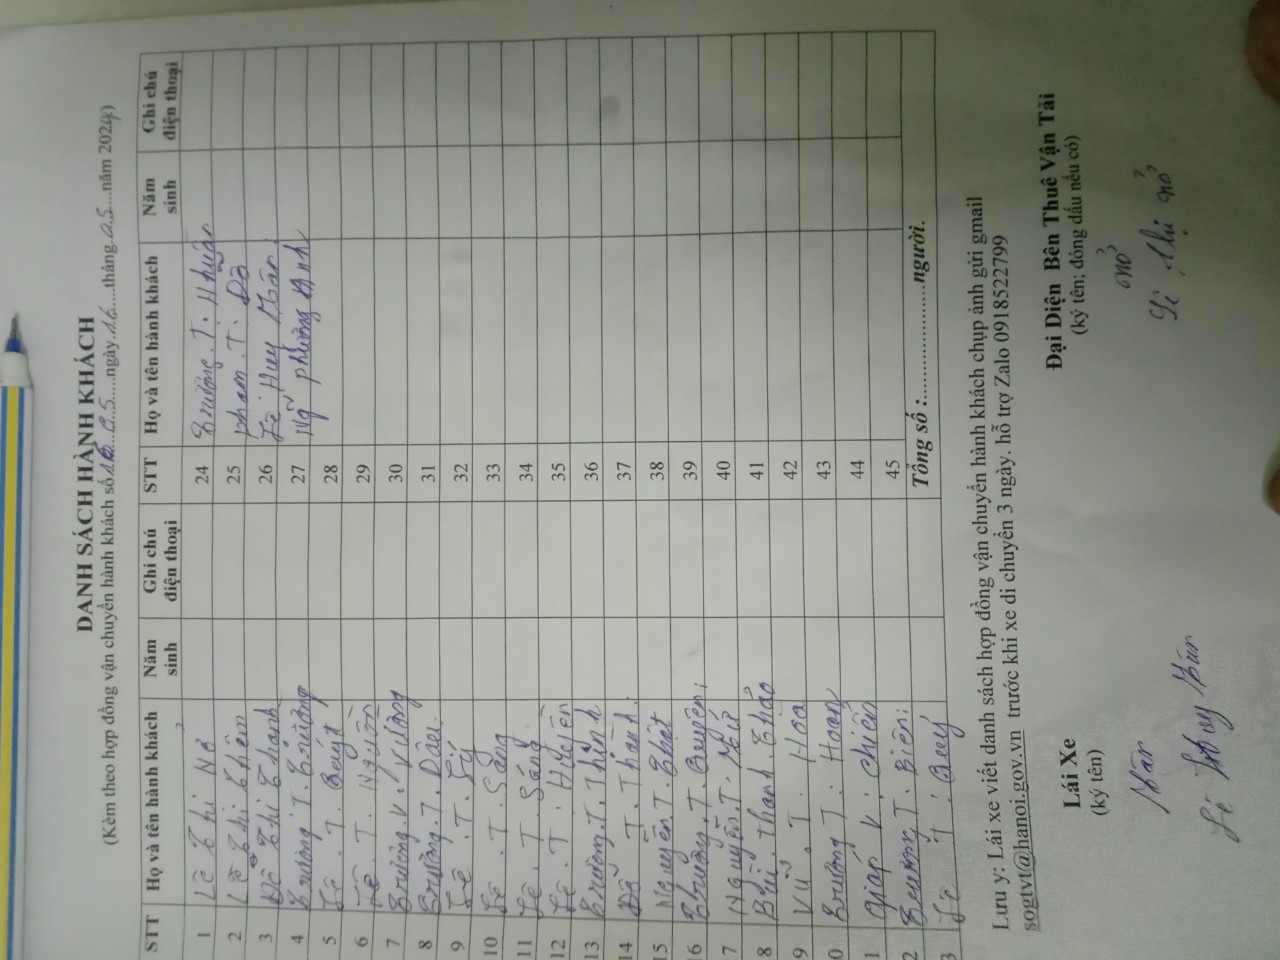 DANH SÁCH HÀNH KHÁCH
(Kèm theo hợp đồng vận chuyển hành khách số 16.05 ngày 16 tháng 05 năm 2024)
STT Họ và tên hành khách Năm sinh Ghi chú điện thoại STT Họ và tên hành khách Năm sinh Ghi chú điện thoại
1 Lê Thị Nở 24 Trương T. Nhuần
2 Lê Thị Thêm 25 Phạm T. Dỡ
3 Đỗ Thị Thanh 26 Lê Huy
4 Trương T. Trường 27 Ng Phương Anh
5 Lê T. Quýt 28
6 Lê T. Nguồn 29
7 Trương V. Vương 30
8 Trương T. Dâu 31
9 Lê T. Lý 32
10 Lê T. Sáng 33
11 Lê T. Sáng 34
12 Lê T. Huyền 35
13 Trương T. Thịnh 36
14 Đỗ T. Thành 37
15 Nguyễn T. Thật 38
16 Trương T. Quyên 39
17 Nguyễn T. 40
18 Bùi Thanh Thảo 41
19 Vũ T. Hoà 42
20 Trương T. Hoan 43
21 Giáp V. Chiến 44
22 Trương T. Biên 45
23 Lê T. Quý Tổng số :....................người.
Lưu y: Lái xe viết danh sách hợp đồng vận chuyển hành khách chụp ảnh gửi gmail
sogtvt@hanoi.gov.vn trước khi xe di chuyển 3 ngày. hỗ trợ Zalo 0918522799
Lái Xe Đại Diện Bên Thuê Vận Tải
(ký tên) (ký tên; đóng dấu nếu có)
Nở
Lê Thị Nở
Lê Huy